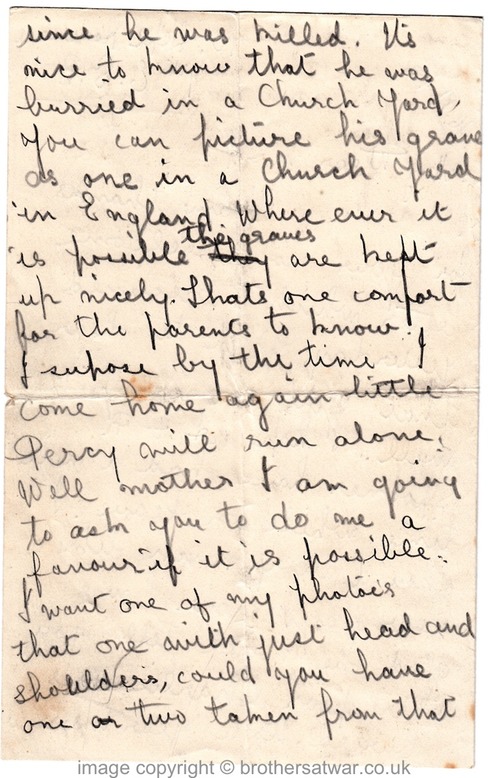 since he was killed. Its
nice to know that he was
burried in a Church Yard,
you can picture his grave
as one in a Church Yard
in England. Where ever it
the graves
is possible they are kept
up nicely. Thats one comfort
for the parents to know.
I supose by the time I
come home again little
Percy will run alone.
Well mother I am going
to ask you to do me a
favour if it is possible.
I want one of my photos
that one with just head and
shoulders, could you have
one or two taken from that
image copyright © brothersatwar.co.uk